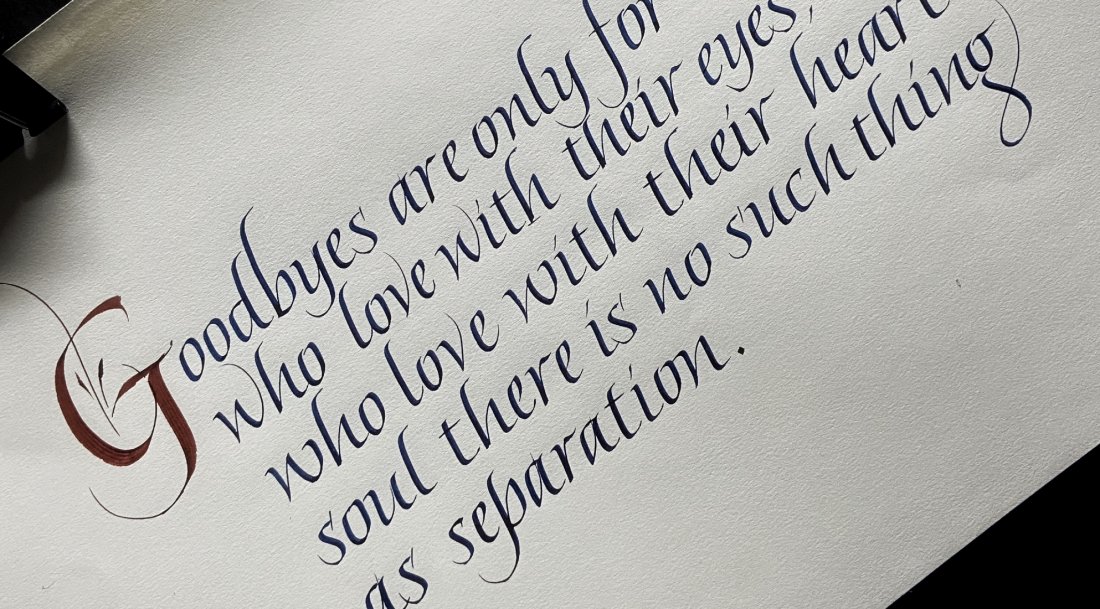 Goodbyes are only for
who love with their eyes,
who love with their heart
soul there is no such thing
as separation.